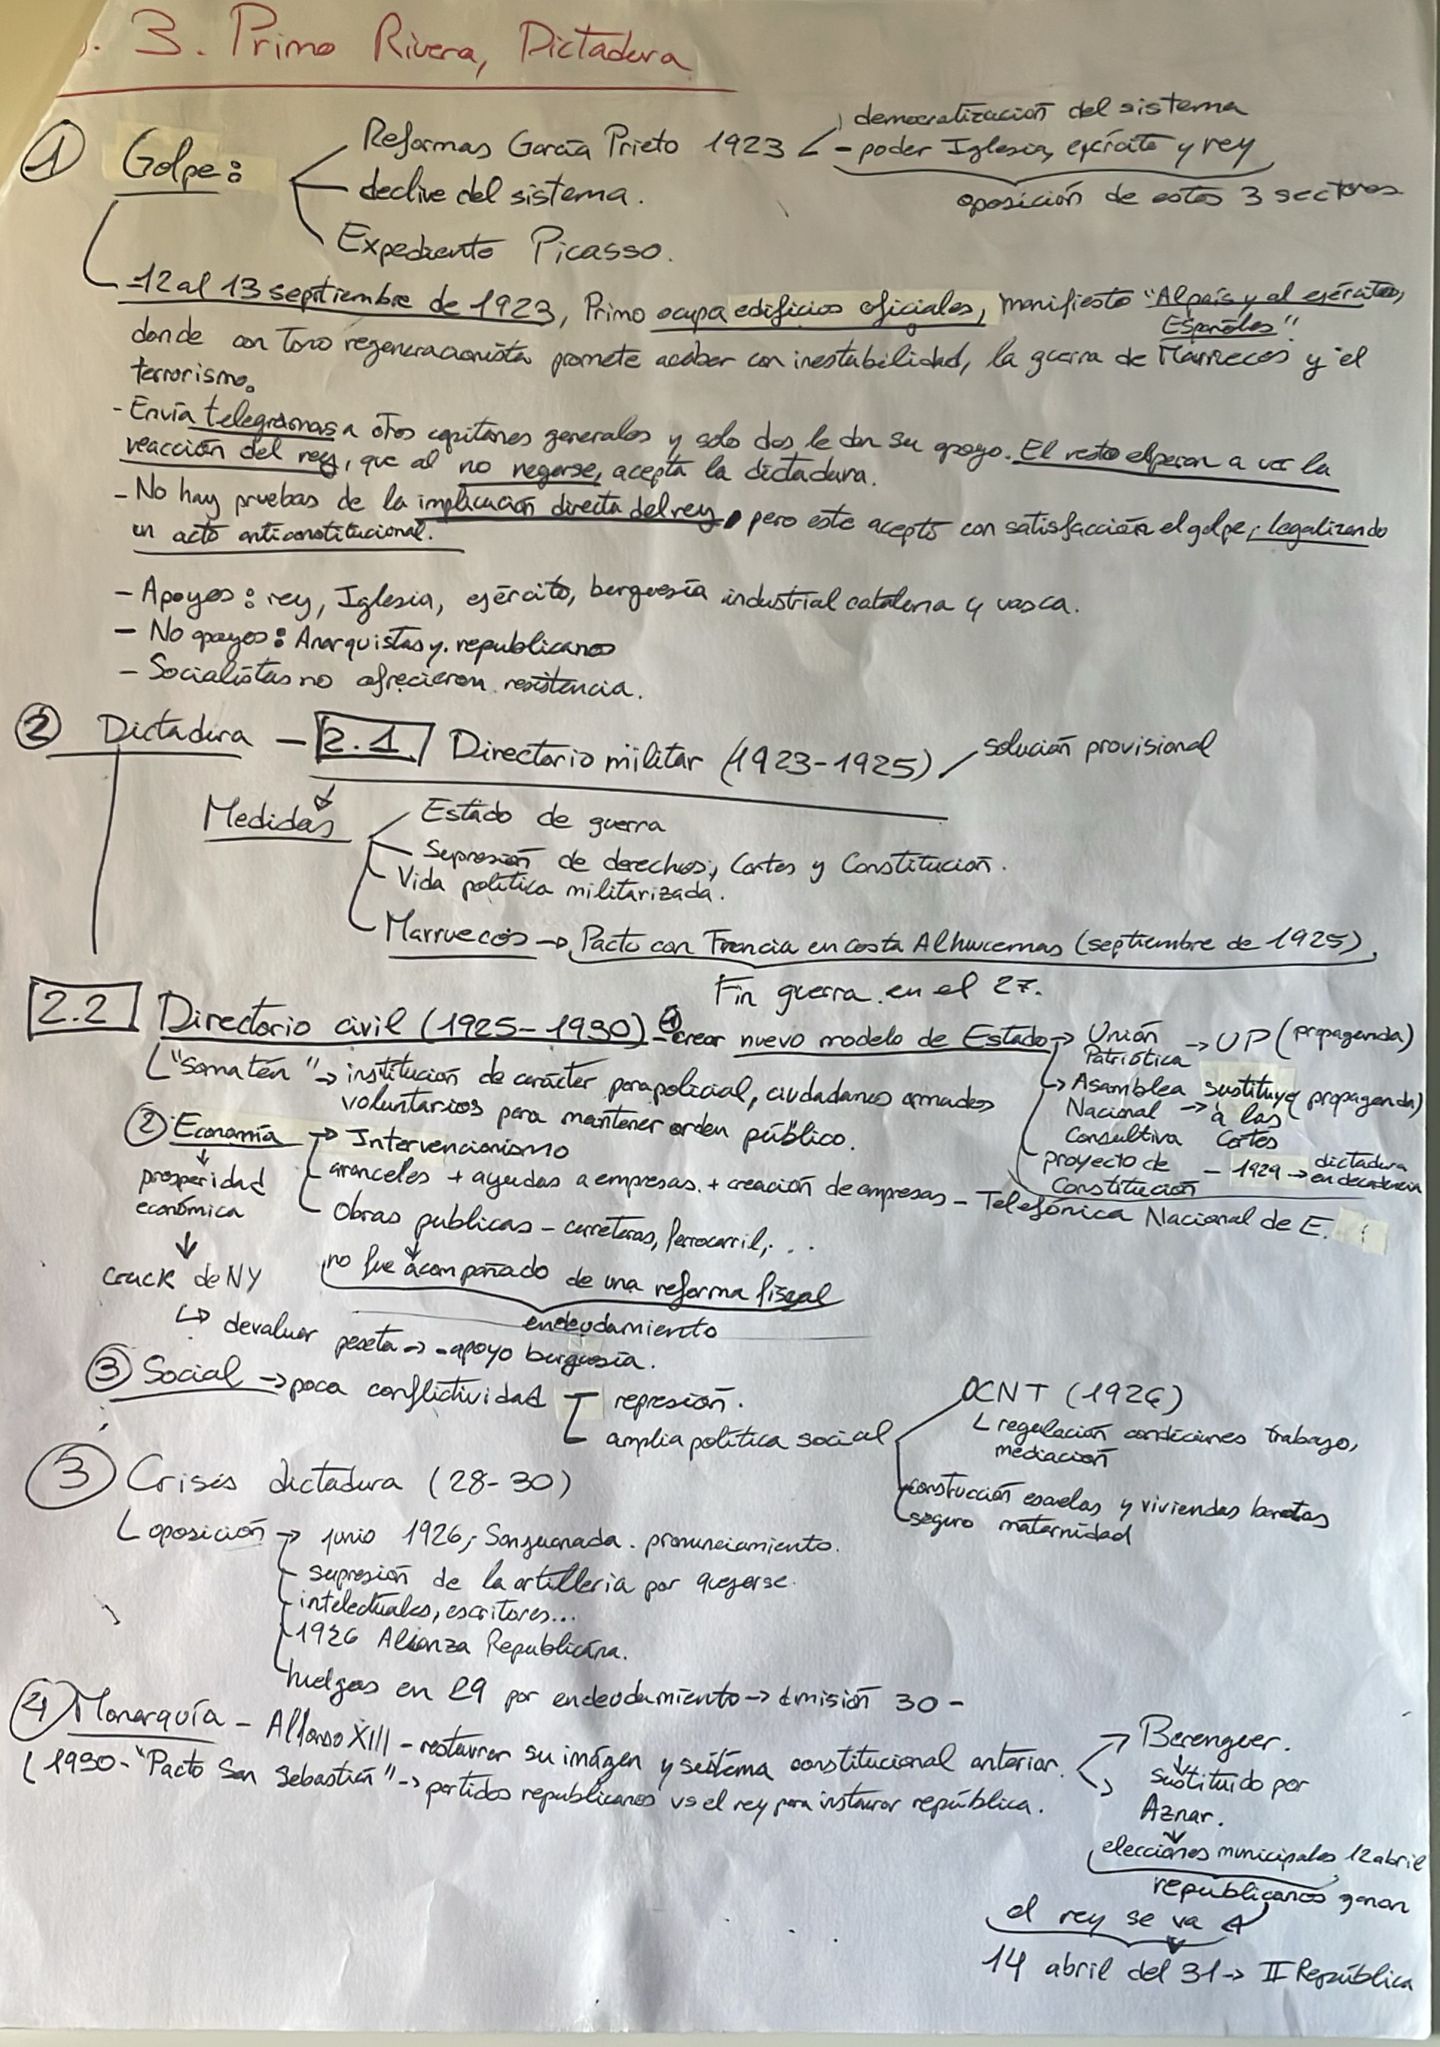 3. Primo Rivera, Dictadura
① Golpe:
Reformas García Prieto 1923
democratización del sistema
- poder Iglesia, ejército y rey
oposición de estos 3 sectores
declive del sistema.
Expediente Picasso.
-12 al 13 septiembre de 1923, Primo ocupa edificios oficiales, manifiesto "Al país y al ejército,
Españoles"
donde con tono regeneracionista promete acabar con inestabilidad, la guerra de Marruecos y el
terrorismo.
- Envía telegramas a otros capitanes generales y solo dos le dan su apoyo. El resto esperan a ver la
reacción del rey, que al no negarse, acepta la dictadura.
- No hay pruebas de la implicación directa del rey, pero este aceptó con satisfacción el golpe, legalizando
un acto anticonstitucional.
- Apoyos: rey, Iglesia, ejército, burguesía industrial catalana y vasca.
- No apoyos: Anarquistas y republicanos
- Socialistas no ofrecieron resistencia.
② Dictadura - 2.1 Directorio militar (1923-1925) solución provisional
Medidas
Estado de guerra
Supresión de derechos, Cortes y Constitución.
Vida política militarizada.
Marruecos → Pacto con Francia en costa Alhucemas (septiembre de 1925)
Fin guerra en el 27.
2.2 Directorio civil (1925-1930) ① - crear nuevo modelo de Estado → Unión Patriótica → UP (propaganda)
"Somatén" → institución de carácter parapolicial, ciudadanos armados
voluntarios para mantener orden público.
Asamblea Nacional Consultiva → sustituye a las Cortes (propaganda)
proyecto de Constitución - 1929 → dictadura en decadencia
② Economía → Intervencionismo
prosperidad económica
aranceles + ayudas a empresas. + creación de empresas - Telefónica Nacional de E.
Obras públicas - carreteras, ferrocarril, ...
no fue acompañado de una reforma fiscal
endeudamiento
crack de NY
↳ devaluar peseta → - apoyo burguesía.
③ Social → poca conflictividad
represión.
amplia política social
OCNT (1926)
regulación condiciones trabajo,
mediación
construcción escuelas y viviendas baratas
seguro maternidad
③ Crisis dictadura (28-30)
oposición → junio 1926, Sanjuanada. pronunciamiento.
supresión de la artillería por quejarse.
intelectuales, escritores...
1926 Alianza Republicana.
huelgas en 29 por endeudamiento → dimisión 30 -
④ Monarquía - Alfonso XIII - restaurar su imágen y sistema constitucional anterior.
1930 - "Pacto San Sebastián" → partidos republicanos vs el rey para instaurar república.
Berenguer.
sustituido por
Aznar.
elecciones municipales 12 abril
republicanos ganan
el rey se va
14 abril del 31 → II República